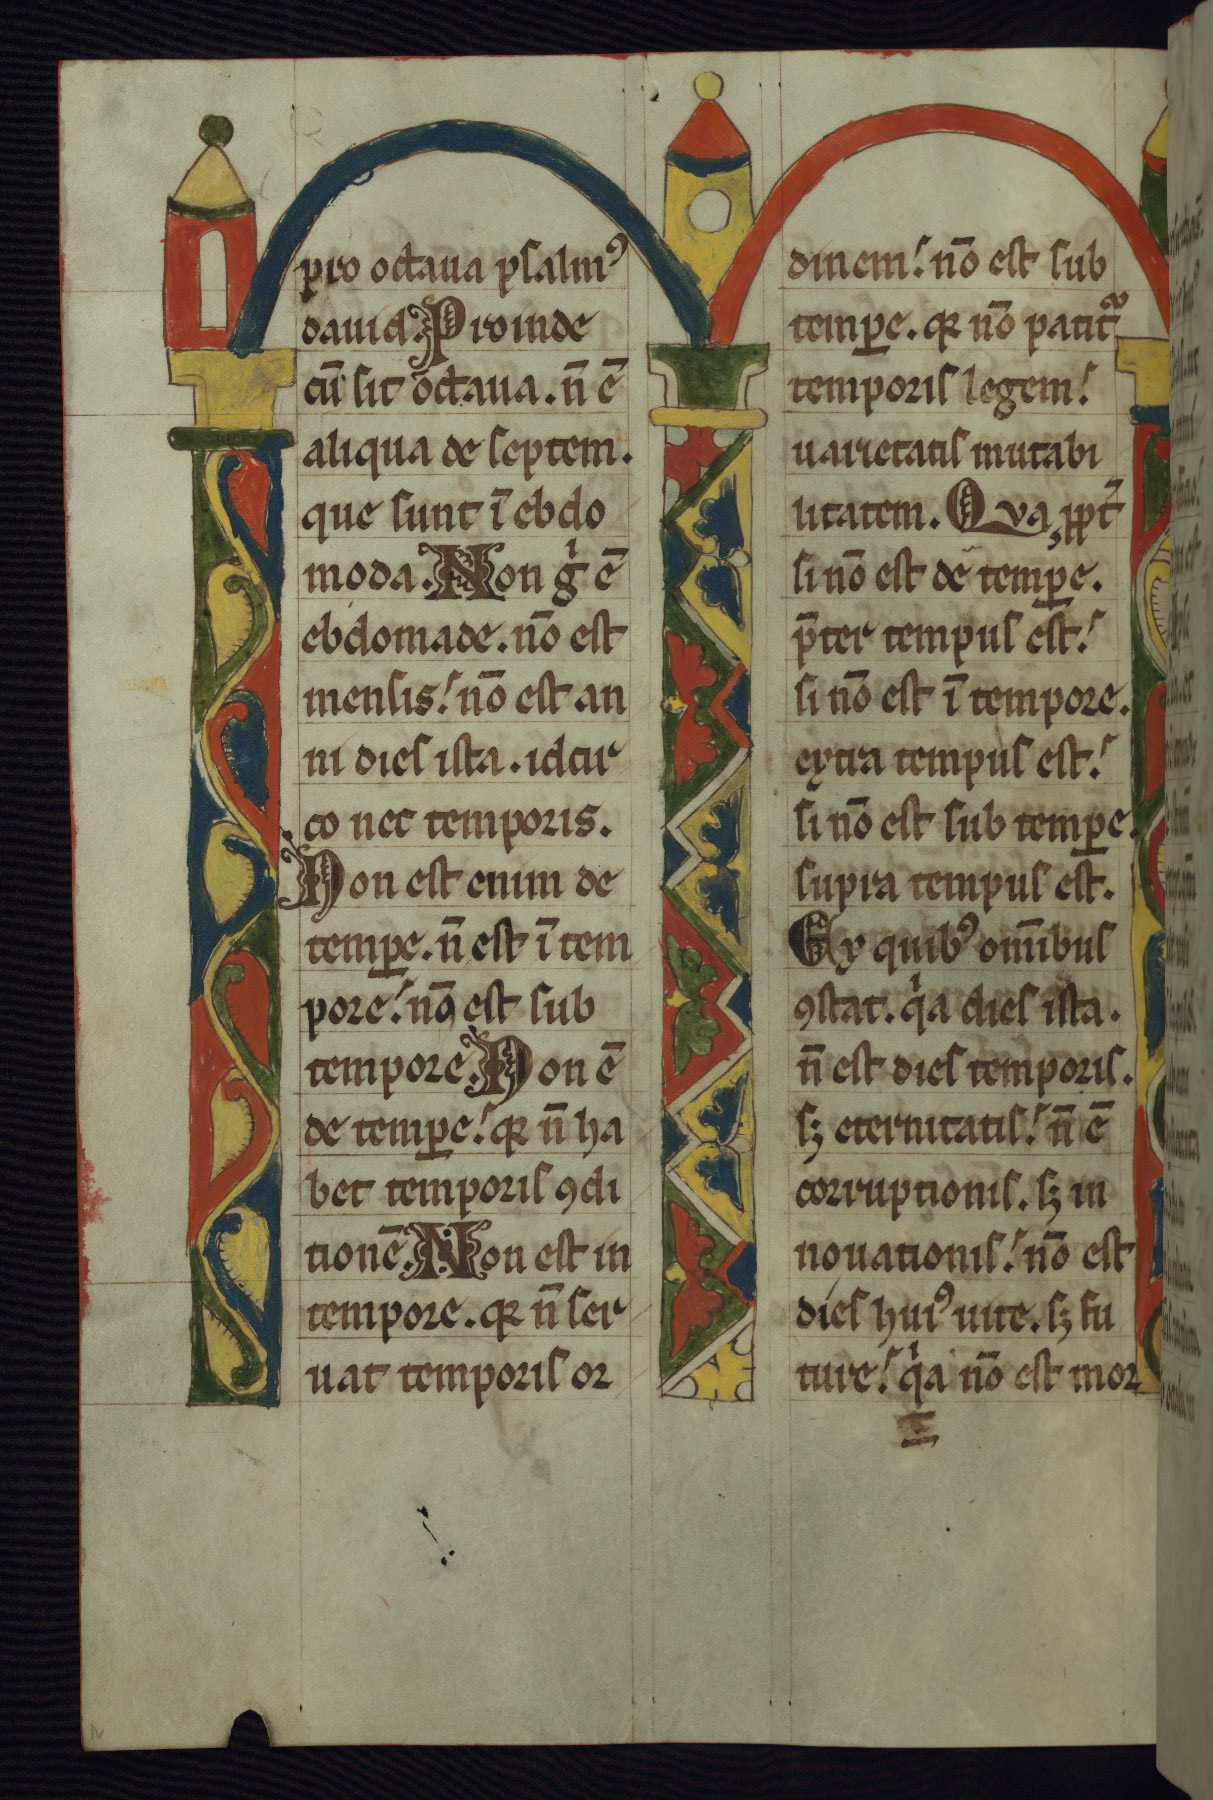 pro octaua psalmꝰ
dauid. Proinde
cū sit octaua. n̄ ē
aliqua de septem.
que sunt ī ebdo
moda. Non gͥ ē
ebdomade. nō est
mensis! nō est an
ni dies ista. idcir
co nec temporis.
Non est enim de
temꝑe. n̄ est ī tem
pore! nō est sub
tempore. Non ē
de temꝑe! qꝛ n̄ ha
bet temporis ꝯdi
tionē. Non est in
tempore. qꝛ n̄ ser
uat temporis or
dinem! nō est sub
temꝑe. qꝛ nō patit᷑
temporis legem!
uarietatis mutabi
litatem. Qua ꝓpt̄
si nō est de temꝑe.
p̄ter tempus est!
si nō est ī tempore.
extra tempus est!
si nō est sub temꝑe.
supra tempus est.
Ex quibꝰ om̄ibus
ꝯstat. qͥa dies ista.
n̄ est dies temporis.
sꝫ eternitatis! n̄ ē
corruptionis. sꝫ in
nouationis! nō est
dies huiꝰ uite. sꝫ fu
ture! qͥa nō est mor